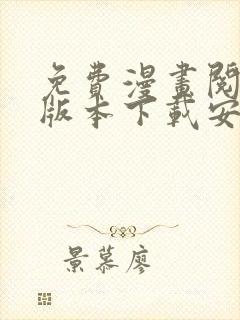 免費漫畫閱
版本下載安
景慕廖